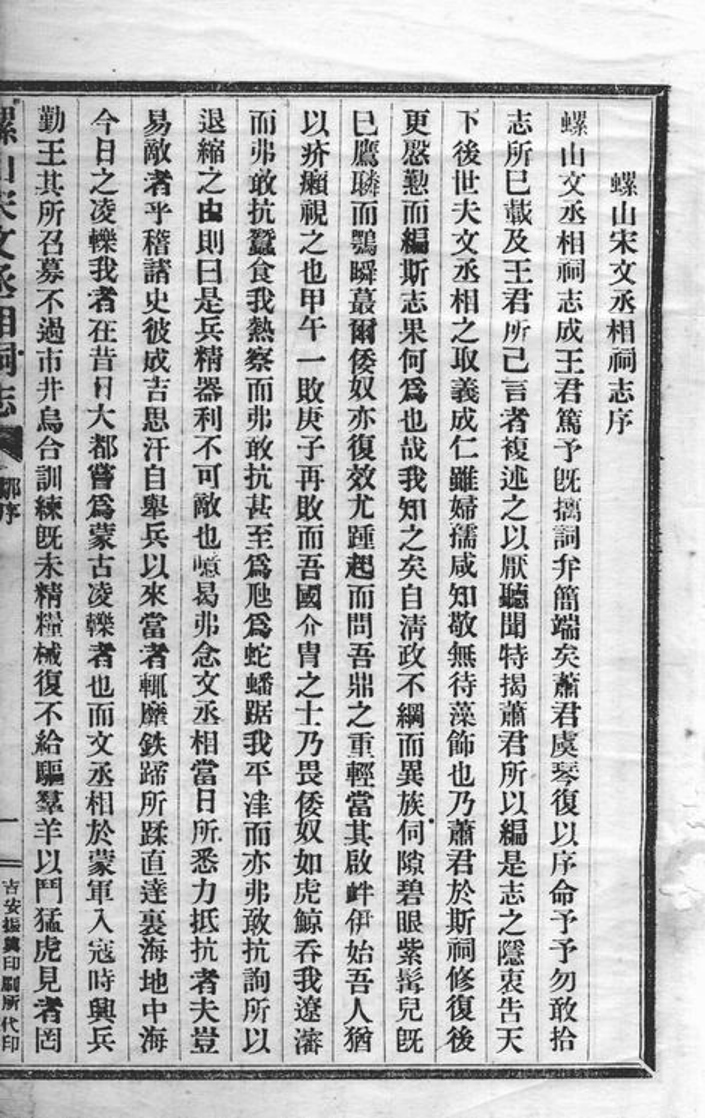 螺山宋文丞相祠志序
螺山文丞相祠志成王君篤予旣摛詞弁簡端矣蕭君虞琴復以序命予予勿敢拾
志所已載及王君所已言者複述之以厭聽聞特揭蕭君所以編是志之隱衷吿天
下後世夫文丞相之取義成仁雖婦孺咸知敬無待藻飾也乃蕭君於斯祠修復後
更慇懃而編斯志果何爲也哉我知之矣自淸政不綱而異族伺隙碧眼紫髯兒旣
已鷹瞵而鶚瞬蕞爾倭奴亦復效尤踵起而問吾鼎之重輕當其啟衅伊始吾人猶
以疥癩視之也甲午一敗庚子再敗而吾國介胄之士乃畏倭奴如虎鯨吞我遼瀋
而弗敢抗蠶食我熱察而弗敢抗甚至爲虺爲蛇蟠踞我平津而亦弗敢抗詢所以
退縮之由則曰是兵精器利不可敵也噫曷弗念文丞相當日所悉力抵抗者夫豈
易敵者乎稽諸史彼成吉思汗自舉兵以來當者輒靡鉄蹄所蹂直達裏海地中海
今日之凌轢我者在昔日大都嘗爲蒙古凌轢者也而文丞相於蒙軍入寇時興兵
勤王其所召募不過市井烏合訓練旣未精糧械復不給驅羣羊以鬥猛虎見者罔
螺山宋文丞相祠志 鄒序 一 吉安振興印刷所代印